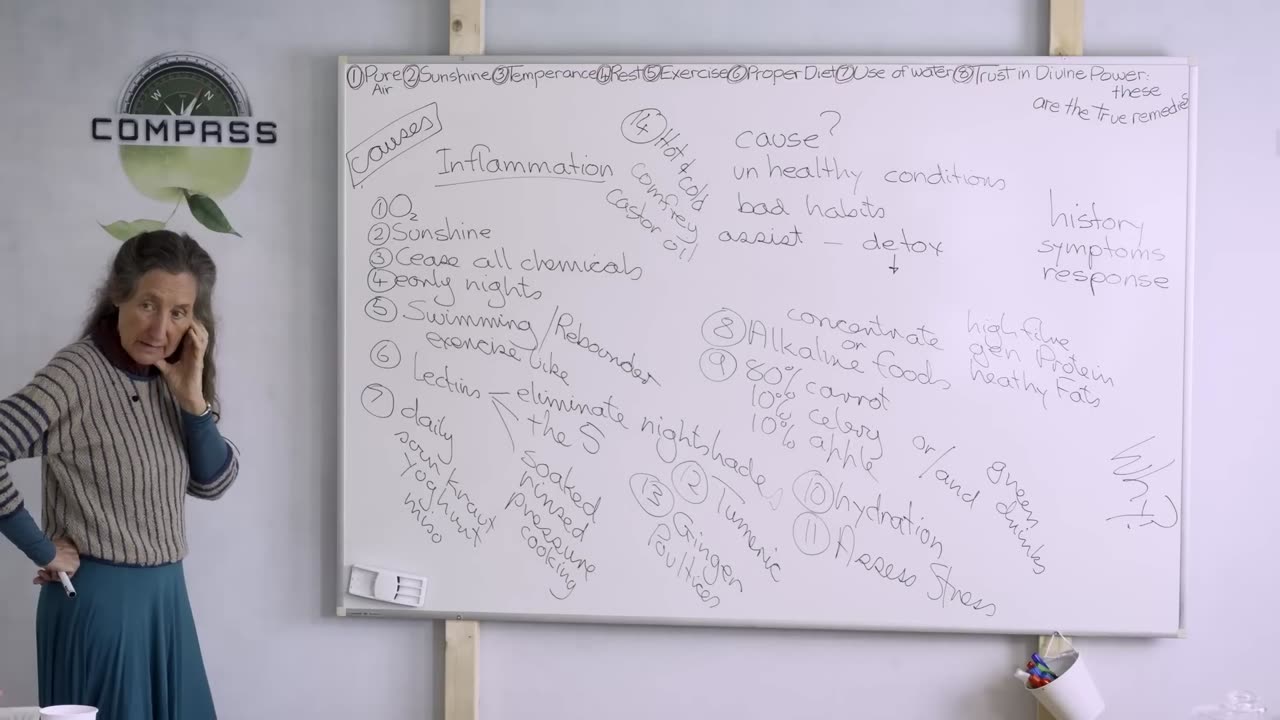 W N
COMPASS
① Pure Air ② Sunshine ③ Temperance ④ Rest ⑤ Exercise ⑥ Proper Diet ⑦ Use of water ⑧ Trust in Divine Power:
these
are the true remedies
causes
Inflammation
① O₂
② Sunshine
③ Cease all chemicals
④ early nights
⑤ Swimming / Rebounder
exercise bike
⑥ Lectins — eliminate nightshades
the 5
soaked
rinsed
pressure
cooking
⑦ daily
sourkraut
yoghurt
miso
⑭ Hot & cold
comfrey
castor oil
cause?
unhealthy conditions
bad habits
assist — detox
history
symptoms
response
concentrate
or
⑧ Alkaline foods
high fibre
gen Protein
heathy Fats
⑨ 80% carrot
10% celery
10% apple
or/and green drinks
⑩ hydration
⑪ Assess Stress
⑫ Tumeric
⑬ Ginger
Poultices